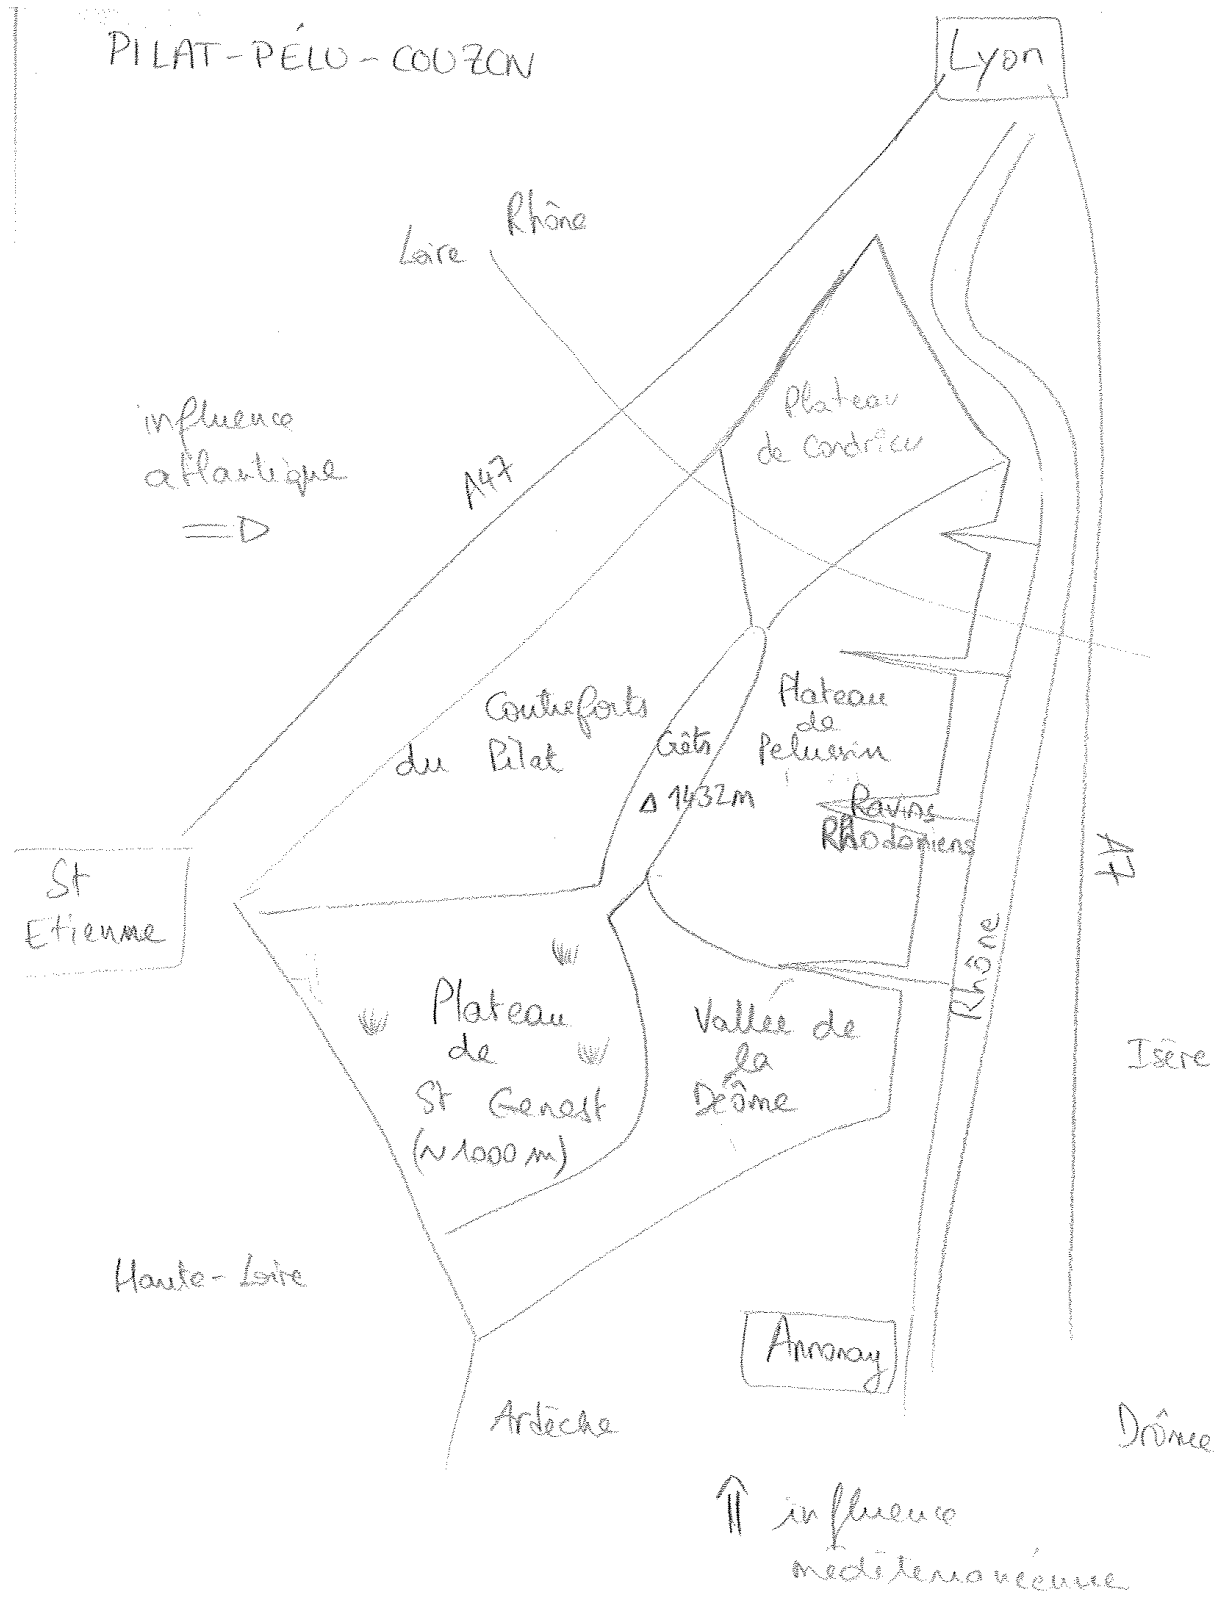 PILAT-PÉLU-COUZON
Lyon
Loire
Rhône
influence
atlantique
A47
Plateau
de Condrieu
Contreforts
du Pilat
Crêts
Δ 1432m
Plateau
de
Pelussin
Ravins
RHodaniens
A7
St
Etienne
Rhône
Plateau
de
St Genest
(~1000 m)
Vallée de
la
Déôme
Isère
Haute-Loire
Annonay
Ardèche
Drôme
influence
méditerranéenne